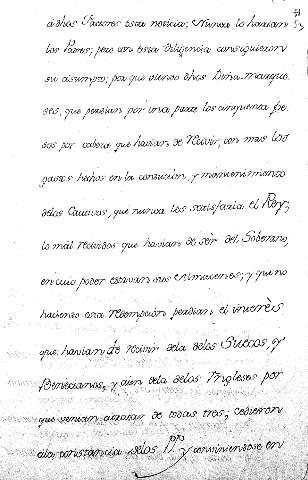 á dhos Señores esta noticia; Nunca lo harian
los Padres; pero con esta diligencia consiguieron
su asumpto; porque viendo dhos Dina-marque-
ses, que perdian por una parte los cinquenta pe-
sos por cabeza que havian de recivir, con mas los
gastos hechos en la conducion, y mantenimiento
delos Cautivos, que nunca los satisfaria el Rey;
lo mal recividos que havian de sèr del Soberano,
en cuio poder estavan sus Almacenes; y que no
haciendo esta redempcion perdian el interès
que havian de recivir dela delos Suecos, y
Venecianos, y aun dela delos Ingleses por
que venian atratar de todas tres; cedieron
ala constancia delos PP.es y conviniendose en